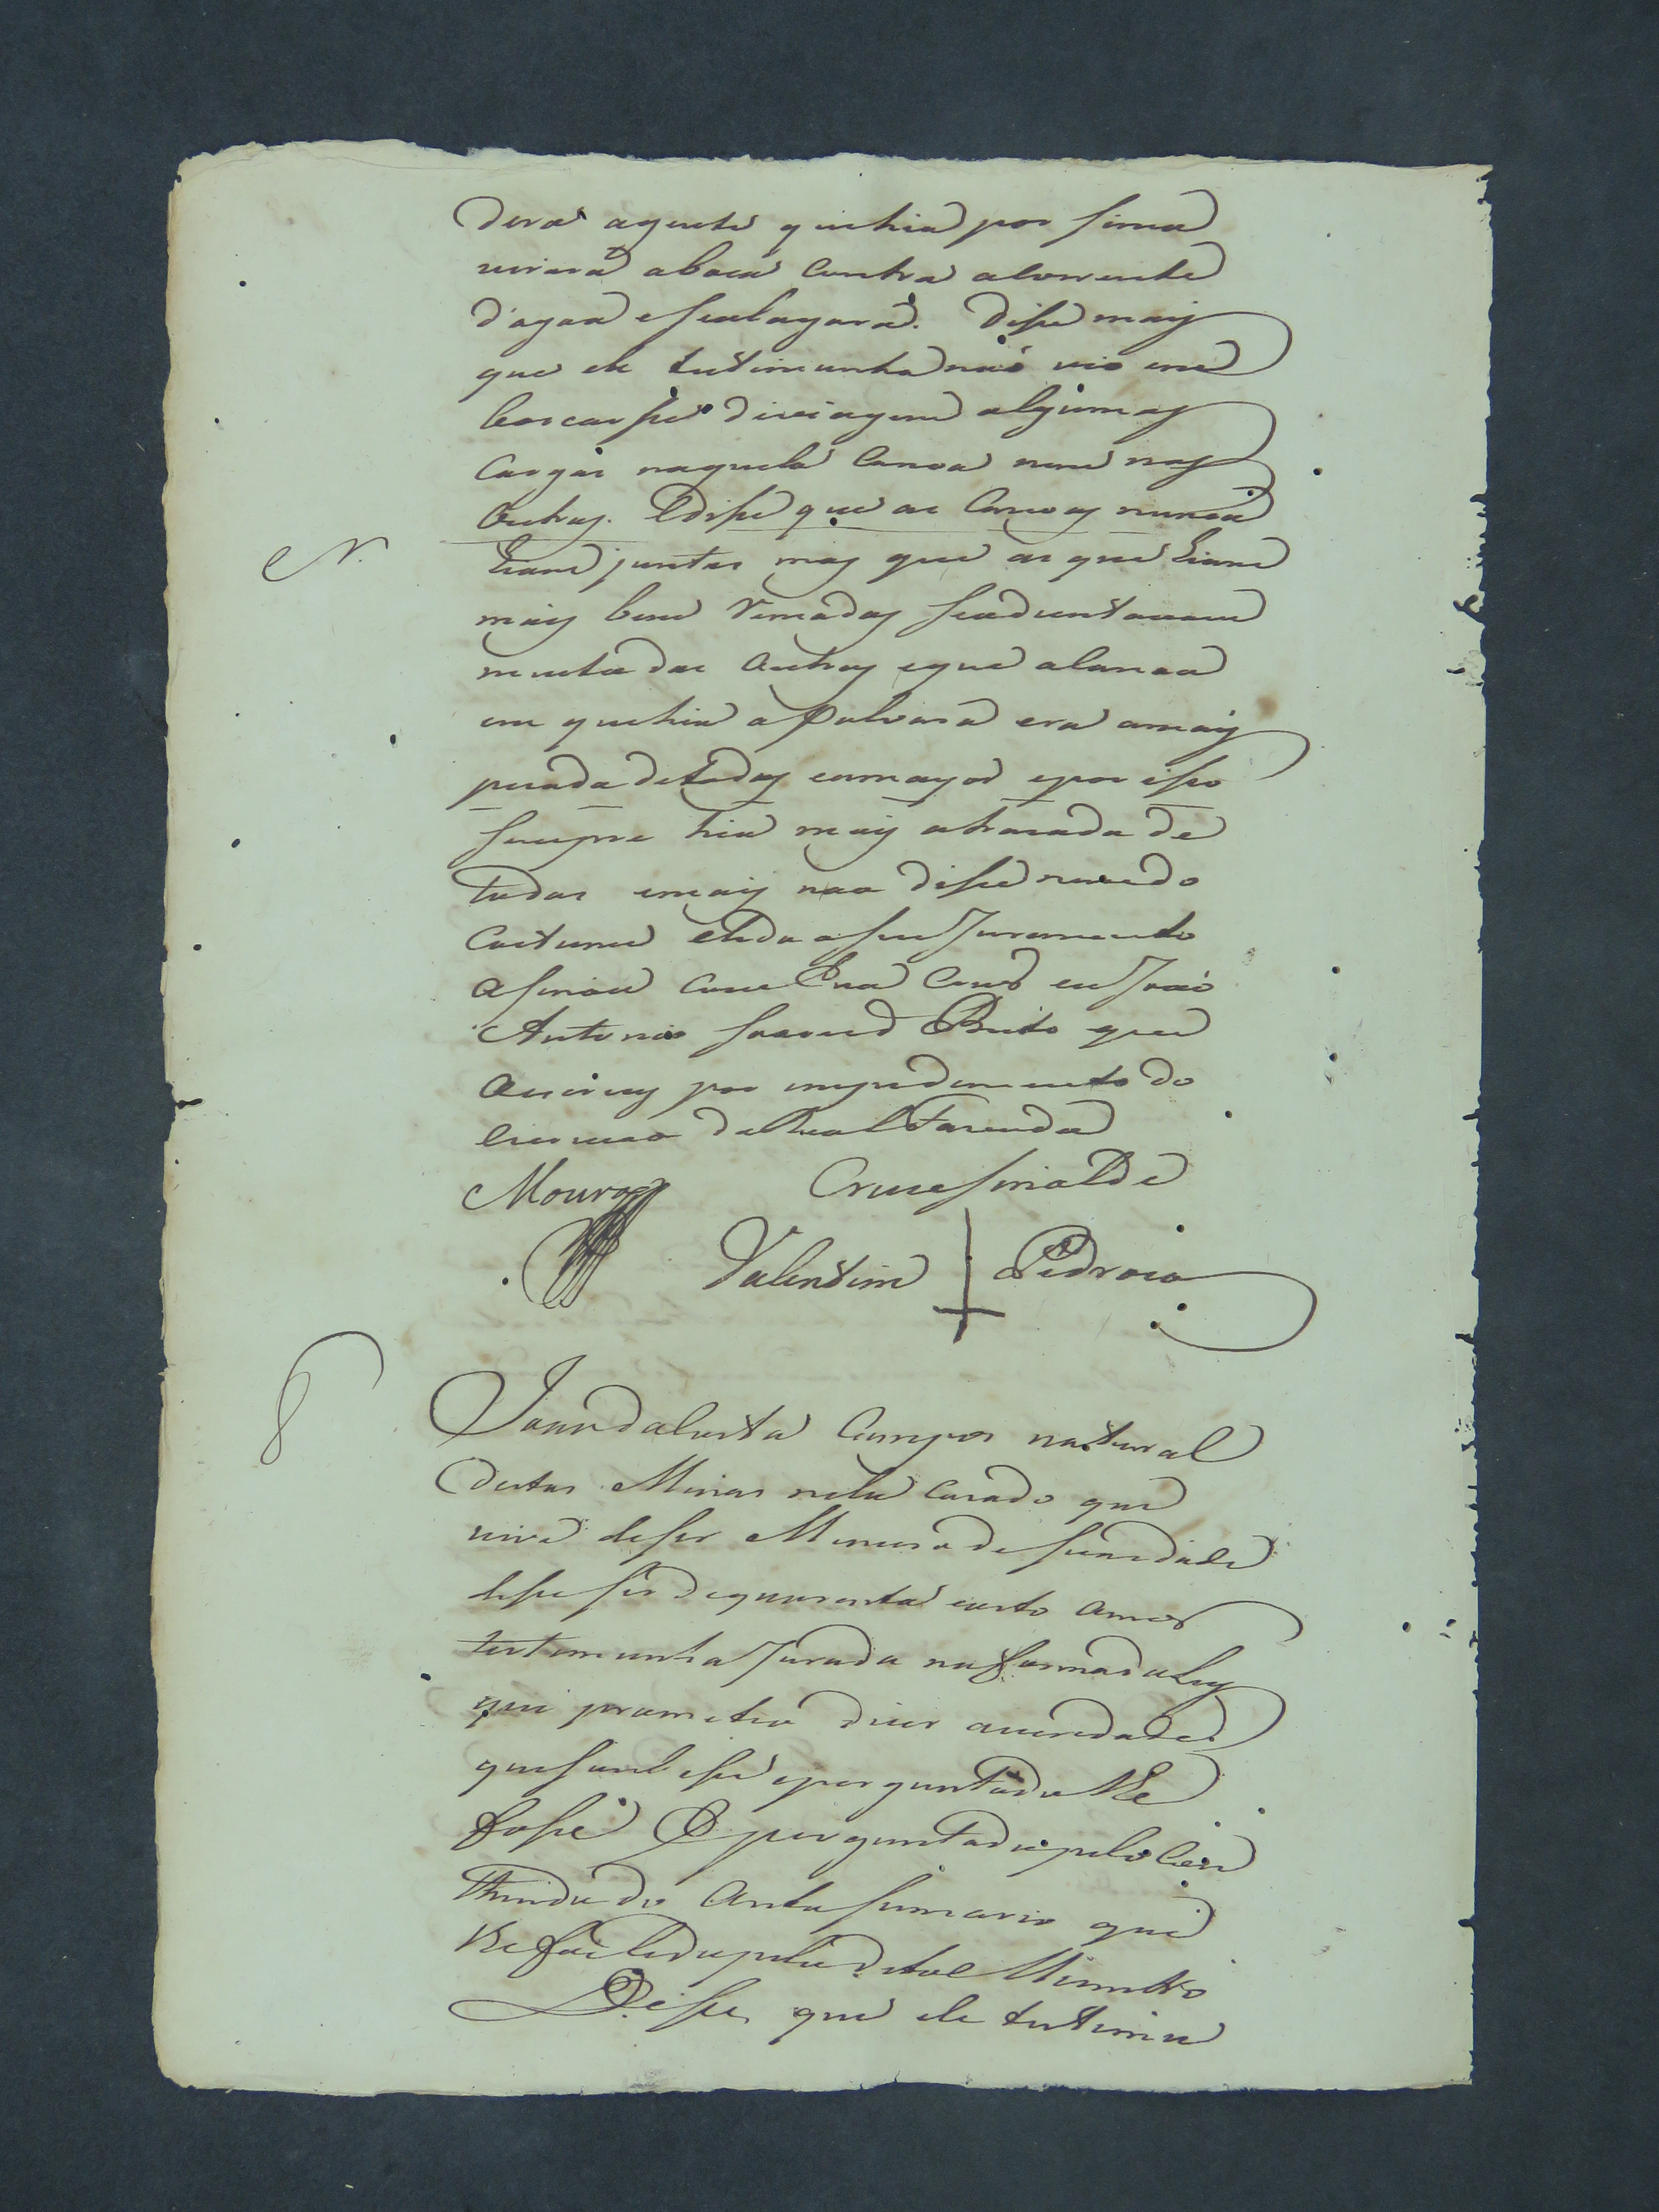 dera a gente que hia por sima
virara a boca contra a Corrente
d'agoa e se alagara. Dise mais
que ele testimunha naó vio em
barcar se de viagem algumas
Cargas naquela Canoa nem nas
Outras. E dise que as Canoas nunca
N. hiam juntas mas que as que hiam
mais bem Remadas se adiantavam
muito das Outras e que a Canoa
em que hia a Polvora era a mais
pezada de todas e a mayor e por iso
sempre hia mais atrazada de
todas e mais nao dise nem do
Costume e lido o seu Juramento
asinou com Cruz eu Joáo
Antonio Soares Brito que
escrevy por impedimento do
Escrivao da Real Fazenda
Moura Cruz e sinal de
Valentim + Pedrozo
8
Joam da Costa Campos natural
destas Minas nelas Cazado que
vive de ser Mineiro de sua idade
dise ser de quarenta e outo annos
testemunha Jurada na forma da Ley
que prometeu dizer a verdade do
que soubese e perguntado lhe
fose E perguntado pelo Con
theudo do Auto sumario que
lhe foi lido pelo dito Ministro
Dise que ele testimu